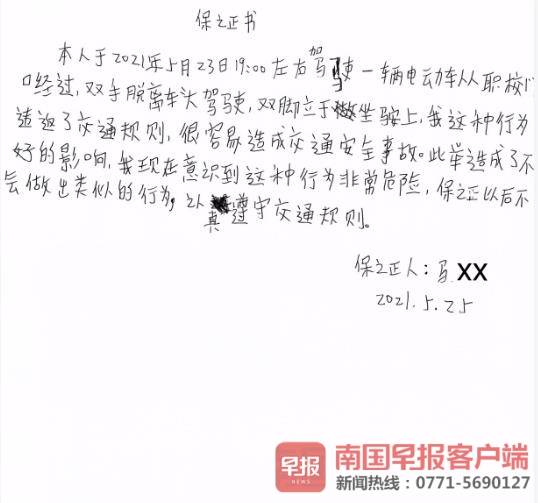 保证书
本人于2021年5月23日19:00左右驾驶一辆电动车从职校门
口经过,双手脱离车头驾驶,双脚立于坐鞍上,我这种行为
违返了交通规则,很容易造成交通安全事故。此举造成了不
好的影响,我现在意识到这种行为非常危险,保证以后不
会做出类似的行为,认真遵守交通规则。
保证人:马XX
2021.5.25
早报 南国早报客户端
NEWS 新闻热线:0771-5690127